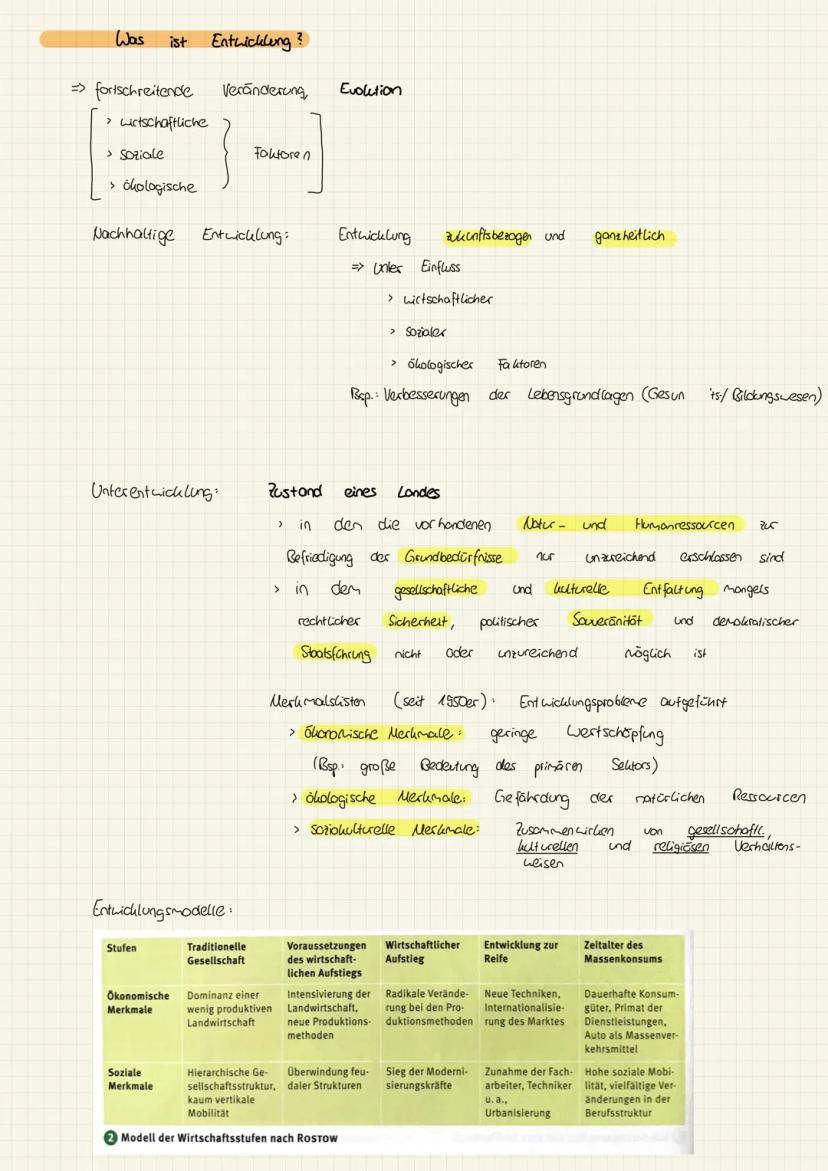 Was ist Entwicklung?
=> fortschreitende Veränderung, Evolution
> wirtschaftliche
> soziale
> ökologische
Faktoren
Nachhaltige Entwicklung: Entwicklung zukunftsbezogen und ganzheitlich
=> unter Einfluss
> wirtschaftlicher
> sozialer
> ökologischer Faktoren
Bsp.: Verbesserungen der Lebensgrundlagen (Gesun its-/ Bildungswesen)
Unterentwicklung: Zustand eines Landes
> in den die vorhandenen Natur- und Humanressourcen zur
Befriedigung der Grundbedürfnisse nur unzureichend erschlossen sind
> in dem gesellschaftliche und kulturelle Entfaltung mangels
rechtlicher Sicherheit, politischer Souveränität und demokratischer
Staatsführung nicht oder unzureichend möglich ist
Merkmalslisten (seit 1950er): Entwicklungsprobleme aufgeführt
> ökonomische Merkmale: geringe Wertschöpfung
(Bsp.: große Bedeutung des primären Sektors)
> ökologische Merkmale: Gefährdung der natürlichen Ressourcen
> soziokulturelle Merkmale: Zusammenwirken von gesellschaftl.,
kulturellen und religiösen Verhaltens-
weisen
Entwicklungsmodelle:
Stufen
Traditionelle
Gesellschaft
Voraussetzungen
des wirtschaft-
lichen Aufstiegs
Wirtschaftlicher
Aufstieg
Entwicklung zur
Reife
Zeitalter des
Massenkonsums
Ökonomische
Merkmale
Dominanz einer
wenig produktiven
Landwirtschaft
Intensivierung der
Landwirtschaft,
neue Produktions-
methoden
Radikale Verände-
rung bei den Pro-
duktionsmethoden
Neue Techniken,
Internationalisie-
rung des Marktes
Dauerhafte Konsum-
güter, Primat der
Dienstleistungen,
Auto als Massenver-
kehrsmittel
Soziale
Merkmale
Hierarchische Ge-
sellschaftsstruktur,
kaum vertikale
Mobilität
Überwindung feu-
daler Strukturen
Sieg der Moderni-
sierungskräfte
Zunahme der Fach-
arbeiter, Techniker
u. a.,
Urbanisierung
Hohe soziale Mobi-
lität, vielfältige Ver-
änderungen in der
Berufsstruktur
2 Modell der Wirtschaftsstufen nach ROSTOW